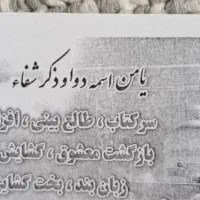 یا من اسمه دواء و ذکر شفاء
سرکتاب ، طالع بینی ، افزا
بازگشت معشوق ، گشایش
زبان بند ، بخت گشایـ